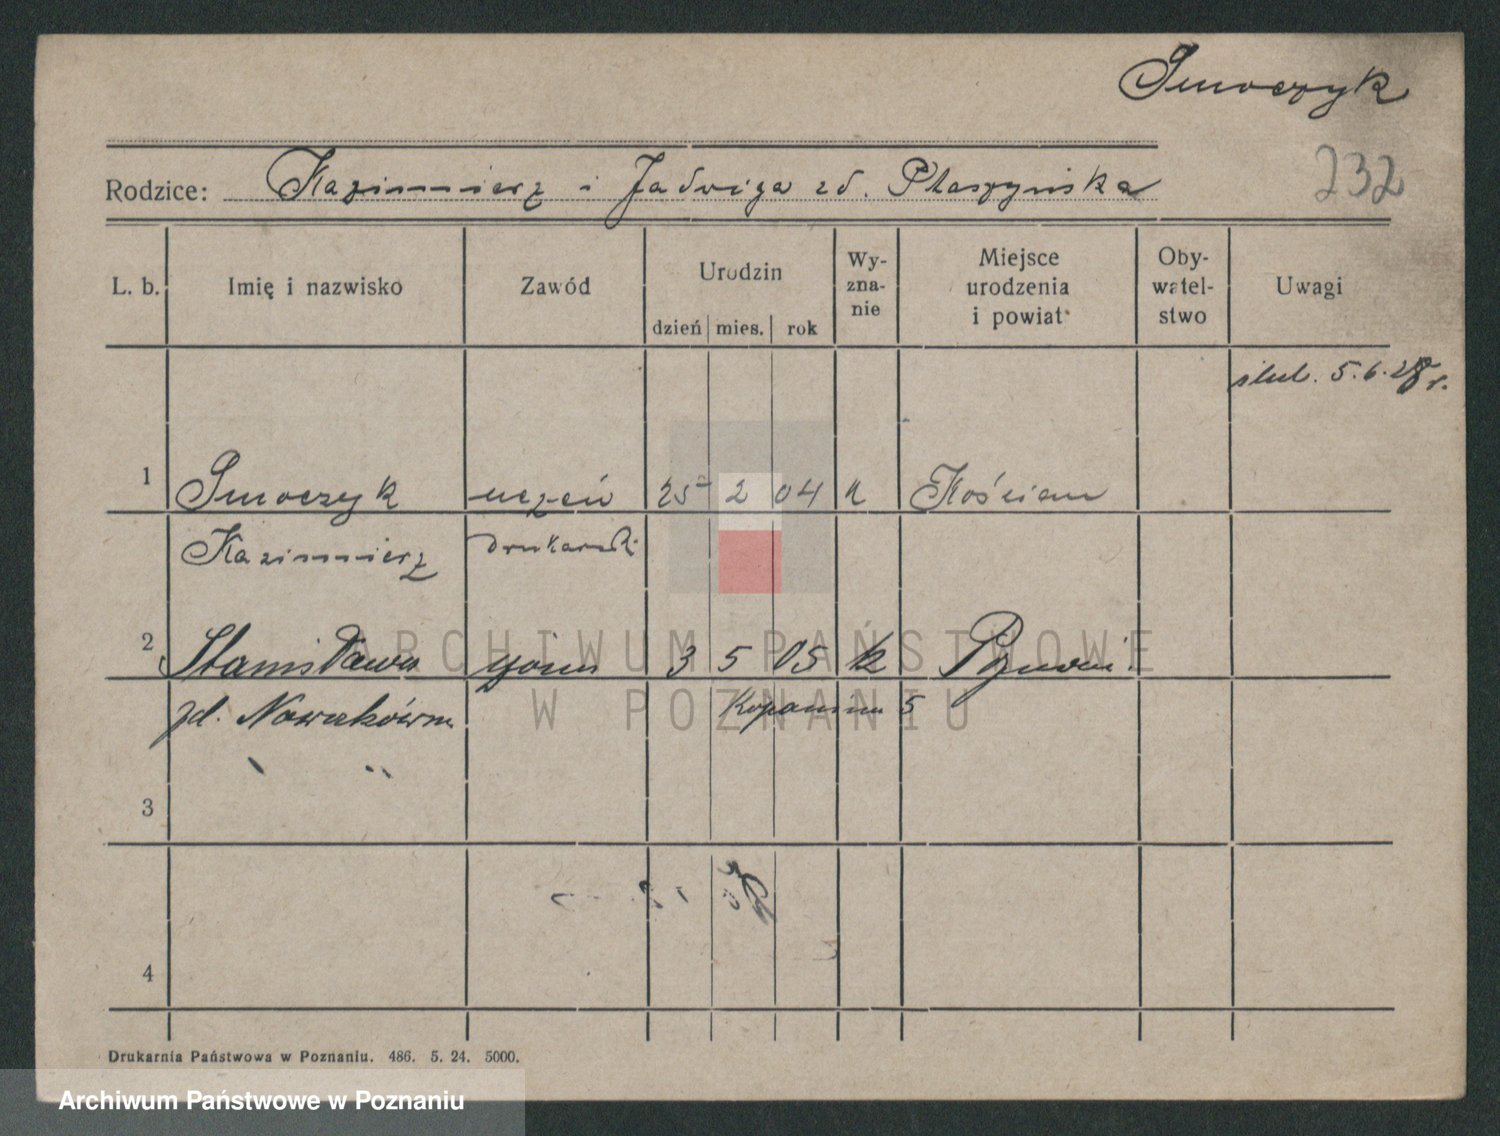 Smoczyk
232
Rodzice: Kazimierz i Jadwiga zd. Ptaszyńska
L. b. Imię i nazwisko Zawód Urodzin Wy-zna-nie Miejsce urodzenia i powiat Oby-watel-stwo Uwagi
dzień mies. rok
ślub. 5.6.28 r.
1 Smoczyk uczeń 25 2 04 k Kościan
Kazimierz drukarski
2 Stanisława żona 3 5 05 k Poznań
zd. Nowakówna Kopanina 5
3
4
Drukarnia Państwowa w Poznaniu. 486. 5. 24. 5000.
ARCHIWUM PAŃSTWOWE
W POZNANIU
Archiwum Państwowe w Poznaniu